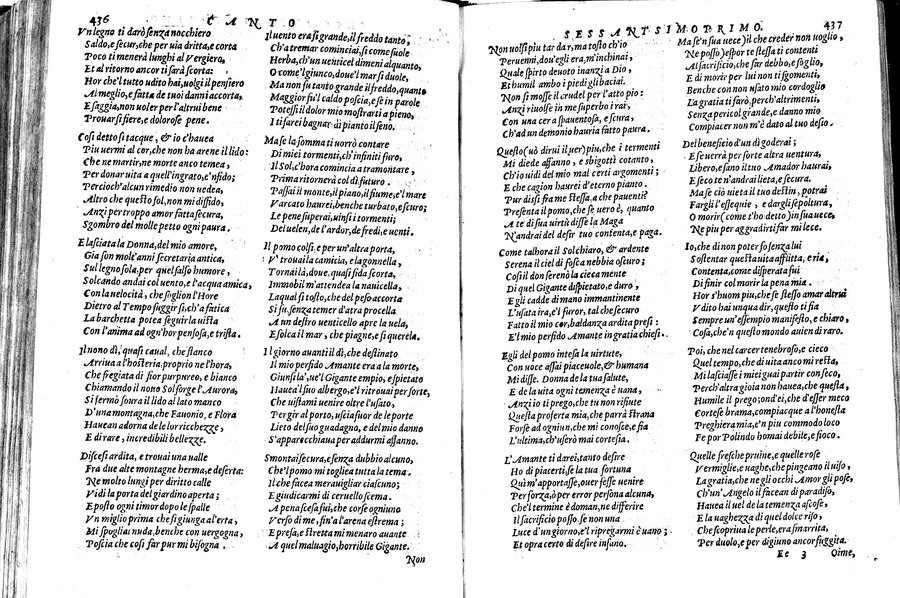 436
CANTO
Vn legno ti darò senza nocchiero
Saldo, e secur, che per uia dritta, e corta
Poco ti menerà lunghi al Vergiero,
Et al ritorno ancor ti sarà scorta:
Hor che'l tutto udito hai, uolgi il pensiero
Al meglio, e fatta de tuoi danni accorta,
E saggia, non uoler per l'altrui bene
Prouar sì fiere, e dolorose pene.
Così detto si tacque, & io c'hauea
Piu uermi al cor, che non ha arene il lido:
Che ne martir, ne morte anco temea,
Per donar uita a quell'ingrato, e'nfido;
Percioch'alcun rimedio non uedea,
Altro che questo sol, non mi diffido,
Anzi per troppo amor fatta secura,
Sgombro del molle petto ogni paura.
E lasciata la Donna, del mio amore,
Gia son molt'anni secretaria antica,
Su'l legno sola, per quel salso humore,
Solcando andai col uento, e l'acqua amica,
Con la velocità, che soglion l'Hore
Dietro al Tempo fuggir sì, ch'a fatica
La barchetta potea seguir la uista
Con l'anima ad ogn'hor pensosa, e trista.
Il nono dì, quasi caual, che stanco
Arriua a l'hosteria, proprio ne l'hora,
Che fregiata di fior purpureo, e bianco
Chiamando il nono Sol sorge l'Aurora,
Si fermò soura il lido al lato manco
D'una montagna, che Fauonio, e Flora
Haueano adorna de le lor ricchezze,
E di rare, incredibili bellezze.
Discesi ardita, e trouai una ualle
Fra due alte montagne herma, e deserta:
Ne molto lungi per diritto calle
Vidi la porta del giardino aperta;
E posto ogni timor dopo le spalle
Vn miglio prima che si giunga al'erta,
Mi spogliai nuda, benche con uergogna,
Poscia che così far pur mi bisogna.
Il uento era sì grande, il freddo tanto,
Ch'a tremar cominciai, sì come suole
Herba, ch'un uenticel dimeni alquanto,
O come'l giunco, doue'l mar si duole,
Ma non fu tanto grande il freddo, quanto
Maggior fu'l caldo poscia, e se in parole
Potessi il dolor mio mostrarti a pieno,
I ti farei bagnar di pianto il seno.
Ma se la somma ti uorrò contare
Di miei tormenti, ch'infiniti furo,
Il Sol, c'hora comincia a tramontare,
Prima ritornerà col dì futuro.
Passai il monte, il piano, il fiume, e'l mare
Varcato haurei, benche turbato, e scuro;
Le pene superai, uinsi i tormenti;
Del uelen, de l'ardor, de fredi, e uenti.
Il pomo colsi, e per un'altra porta,
V' trouai la camicia, e la gonnella,
Tornai là, doue, quasi fida scorta,
Immobil m'attendea la nauicella,
La qual sì tosto, che del peso accorta
Si fu, senza temer d'atra procella
A un destro uenticello apre la uela,
E solca il mar, che piagne, e si querela.
Il giorno auanti il dì, che destinato
Il mio perfido Amante era a la morte,
Giunsi là, ue'l Gigante empio, e spietato
Hauea'l suo albergo, e'l ritrouai per sorte,
Che uistami uenire oltre l'usato,
Per gir al porto, uscia fuor de le porte
Lieto del suo guadagno, e del mio danno
S'apparecchiaua per addurmi affanno.
Smontai secura, e senza dubbio alcuno,
Che'l pomo mi togliea tutta la tema.
Il che facea merauigliar ciascuno;
E giudicarmi di ceruello scema.
A pena scesa fui, che corse ogniuno
Verso di me, fin'a l'arena estrema;
E presa, e stretta mi menaro auante
A quel maluagio, horribile Gigante.
Non
SESSANTESIMOPRIMO.
437
Non uolsi piu tardar, ma tosto ch'io
Peruenni, dou'egli era, m'inchinai,
Quale spirto deuoto inanzi a Dio,
Et humil ambo i piedi gli baciai.
Non si mosse il crudel per l'atto pio:
Anzi riuolse in me superbo i rai,
Con una cera spauentosa, e scura,
Ch'ad un demonio hauria fatto paura.
Questo (uò dirui il uer) piu, che i termenti
Mi diede affanno, e sbigottì cotanto,
Ch'io uidi del mio mal certi argomenti;
E che cagion haurei d'eterno pianto.
Pur dissi fra me stessa, a che pauenti?
Presenta il pomo, che se uero è, quanto
A te di sua uirtù disse la Maga
N'andrai del desir tuo contenta, e paga.
Come talhora il Sol chiaro, & ardente
Serena il ciel di fosca nebbia oscuro;
Così il don serenò la cieca mente
Di quel Gigante dispietato, e duro,
E gli cadde di mano immantinente
L'usata ira, e'l furor, tal che securo
Fatto il mio cor, baldanza ardita presi:
E'l mio perfido Amante in gratia chiesi.
Egli del pomo intesa la uirtute,
Con uoce assai piaceuole, & humana
Mi disse. Donna de la tua salute,
E de la uita ogni temenza è uana,
Anzi io ti prego, che tu non rifiute
Questa proferta mia, che parrà strana
Forse ad ogniun, che mi conosce, e fia
L'ultima, ch'userò mai cortesia.
L'Amante ti darei, tanto desire
Ho di piacerti, se la tua fortuna
Qui m'apportasse, ouer fesse uenire
Per forza, ò per error persona alcuna,
Che'l termine è doman, ne differire
Il sacrificio posso, se non una
Luce d'un giorno, e'l ripregarmi è uano;
Et opra certo di desire insano.
Ma se'n sua uece) il che creder non uoglio,
Ne posso) espor te stessa ti contenti
Al sacrificio, che far debbo, e soglio,
E di morir per lui non ti sgomenti,
Benche con non usato mio cordoglio
La gratia ti farò, perch'altrimenti,
Senza pericol grande, e danno mio
Compiacer non m'è dato al tuo desio.
Del beneficio d'un dì goderai;
E se uerrà per sorte altra uentura,
Libero, e sano il tuo Amador haurai,
E seco te n'andrai lieta, e secura.
Ma se ciò uieta il tuo destin, potrai
Fargli l'essequie, e dargli sepoltura,
O morir (come t'ho detto) in sua uece,
Ne piu per aggradirti far mi lece.
Io, che di non poter so senza lui
Sostentar questa uita afflitta, e ria,
Contenta, come disperata fui
Di finir col morir la pena mia.
Hor s'huom piu, che se stesso amar altrui
Vdito hai unqua dir, questo ti fia
Sempre un'essempio manifesto, e chiaro,
Cosa, che'n questo mondo auien di raro.
Poi, che nel carcer tenebroso, e cieco
Quel tempo, che di uita anco mi resta,
Mi lasciasse i miei guai partir con seco,
Perch'altra gioia non hauea, che questa,
Humile il prego; ond'ei, che d'esser meco
Cortese brama, compiacque a l'honesta
Preghiera mia, e'n piu commodo speco
Fe por Polindo homai debile, e fioco.
Quelle fresche pruine, e quelle rose
Vermiglie, e uaghe, che pingeano il uiso,
La gratia, che ne gli occhi Amor gli pose,
Ch'un' Angelo il facean di paradiso,
Hauea il uel de la temenza ascose,
E la uaghezza di quel dolce riso,
Che scopriua le perle, era smarrita,
Per duolo, e per digiuno ancor suggita.
Ee 3
Oime,